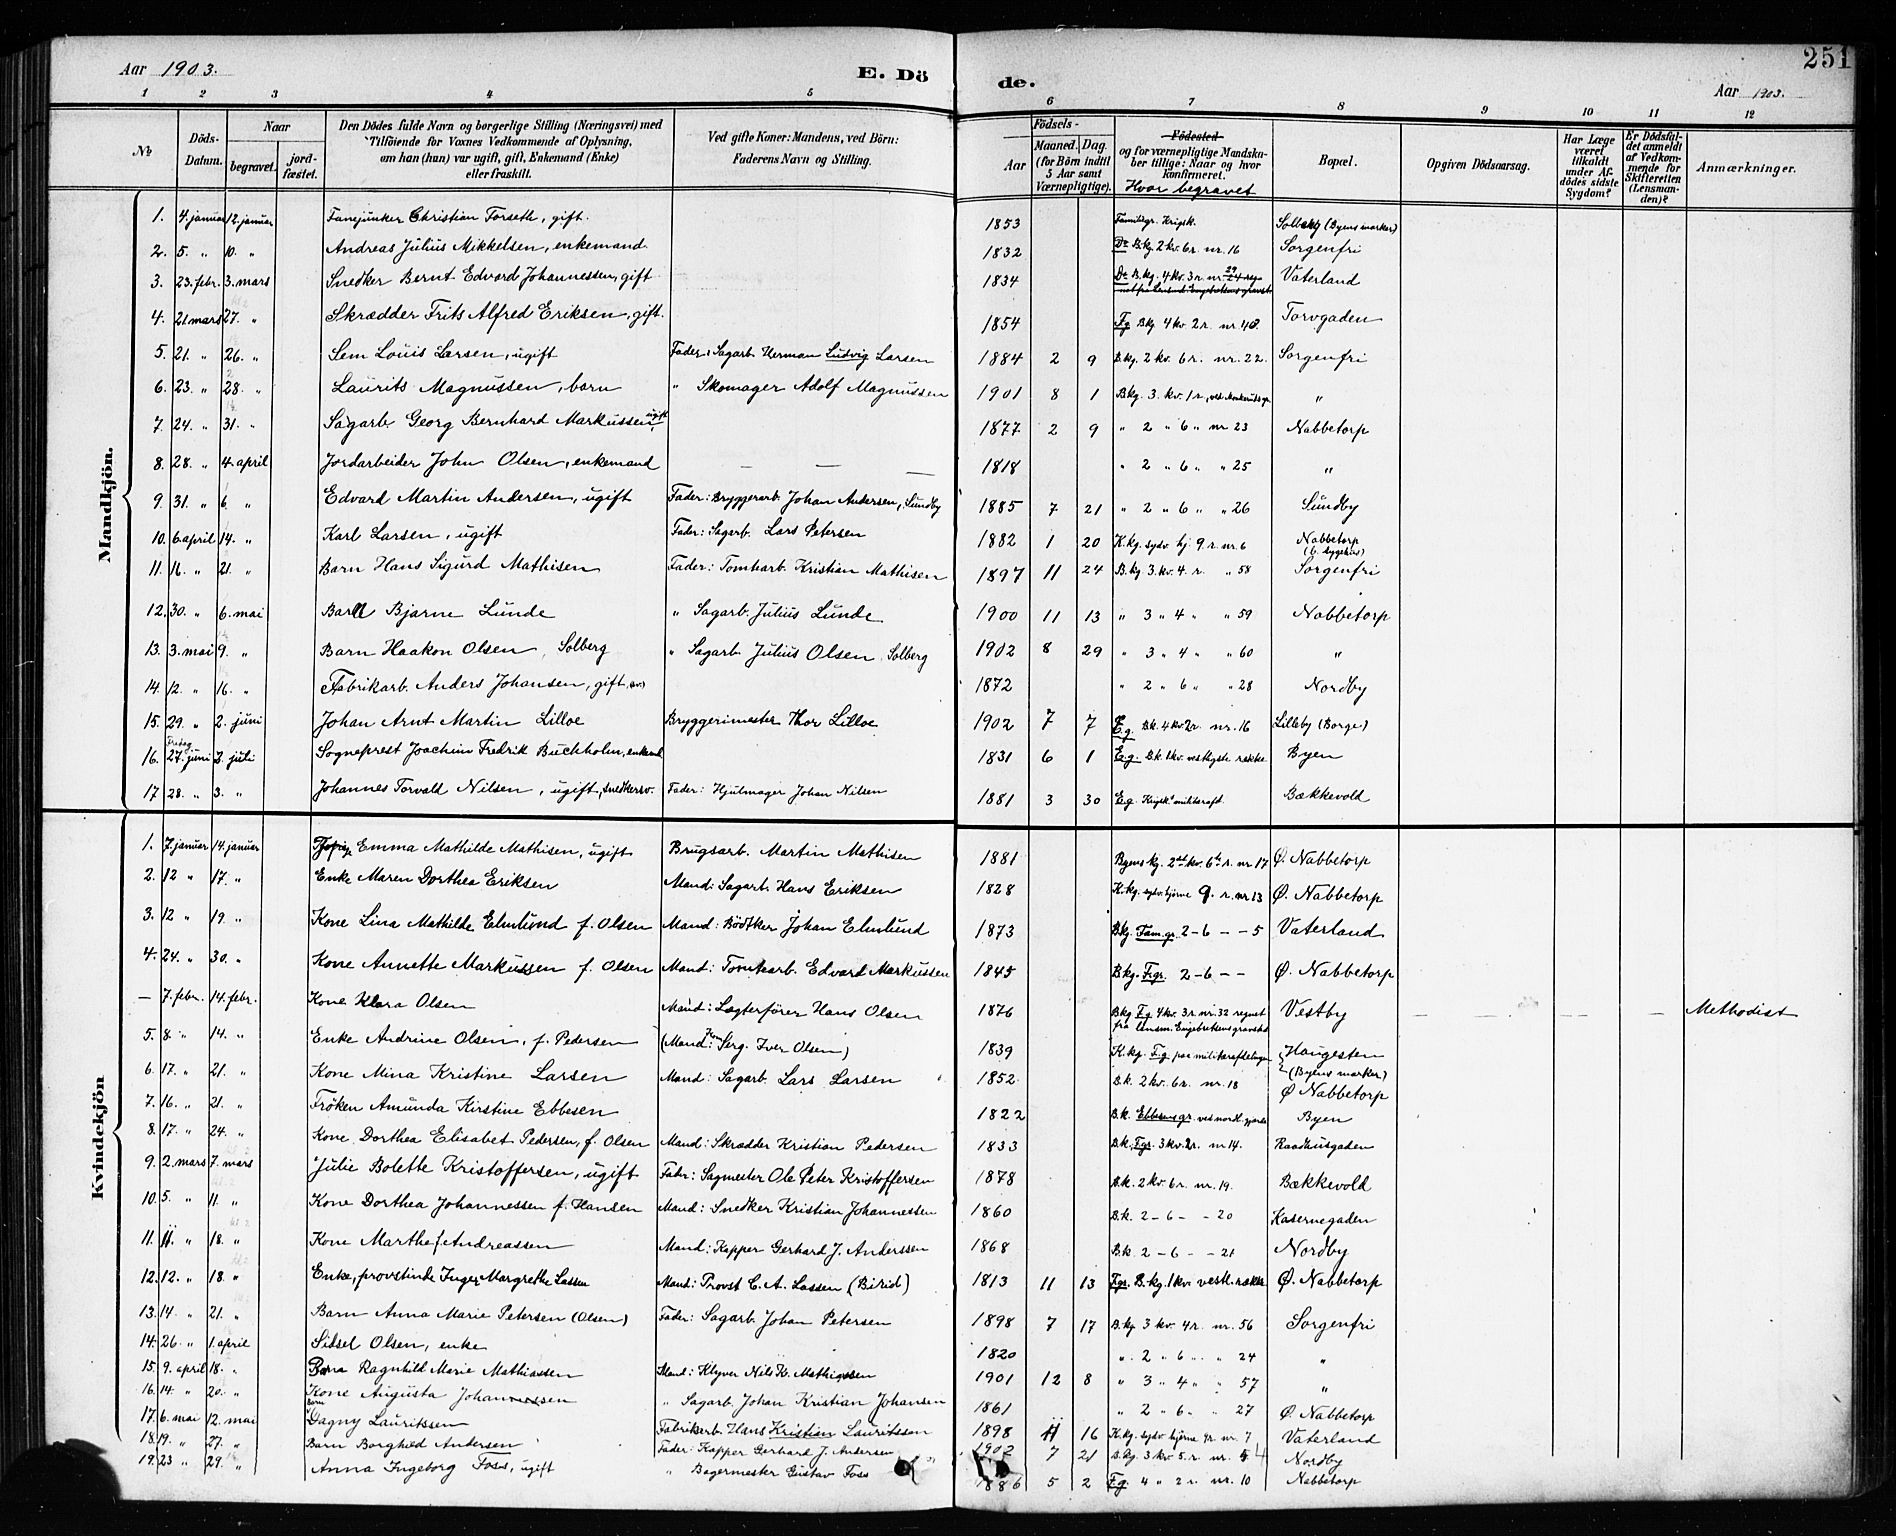 251
Aar 1903. E. Dö de. Aar 1903.
1 2 3 4 5 6 7 8 9 10 11 12
№ Döds-Datum. Naar begravet. jordfæstet. Den Dödes fulde Navn og borgerlige Stilling (Næringsvei) med Tilföiende for Voxnes Vedkommende af Oplysning, om han (han) var ugift, gift, Enkemand (Enke) eller fraskilt. Ved gifte Koner: Mandens, ved Börn: Faderens Navn og Stilling. Födsels- Aar Maaned. Dag. (for Börn indtil 5 Aar samt Værnepligtige). Födested og for værnepligtige Mandskaber tillige: Naar og hvor konfirmeret. Hvor begravet Bopæl. Opgiven Dödsaarsag. Har Læge været tilkaldt under Afdödes sidste Sygdom? Er Dödsfaldet anmeldt af Vedkommende for Skifteretten (Lensmanden)? Anmærkninger.
Mandkjön.
1. 4. januar 12. januar Fanejunker Christian Torseth, gift. 1853 Familiegr. Krigsk. Solberg (Byens marker)
2. 5. " 10. " Andreas Julius Mikkelsen, enkemand. 1832 B.kg. 2 kv. 6 r. nr. 16 Sorgenfri
3. 23. febr. 3. mars Snedker Bernt Edvard Johannessen, gift 1834 B.kg. 4 kv. 3 r. nr. 29 Vaterland
4. 21 mars 27. " Skrædder Frits Alfred Eriksen, gift. 1854 Fg Bkg. 4 kv. 2 r. nr. 40. Torvgaden
5. 21. " 26. " Sem Louis Larsen, ugift Fader: Sagarb. Herman Ludvig Larsen 1884 2 9 B.kg. 2 kv. 6 r. nr. 22. Sorgenfri
6. 23. " 28. " Laurits Magnussen, barn " Skomager Adolf Magnussen 1901 8 1 Bkg. 3. kv. 1 r., "
7. 24. " 31. " Sagarb. Georg Bernhard Markussen, ugift 1877 2 9 " 2 " 6 " nr 23 Nabbetorp
8. 28. " 4. april Jordarbeider John Olsen, enkemand — — — 1818 " 2 " 6 " " 25 "
9. 31. " 6. " Edvard Martin Andersen, ugift Fader: Bryggerarb. Johan Andersen, Sundby 1885 7 21 " 2 " 6 " " 26 Sundby
10. 6. april 14. " Karl Larsen, ugift Fader: Sagarb. Lars Petersen 1882 1 20 K.kg. sydv. hj. 9. r. nr. 6 Nabbetorp (b. sygehus)
11. 16. " 21. " Barn Hans Sigurd Mathisen Fader: Tomtearb. Kristian Mathisen 1897 11 24 B.kg. 3. kv. 4. r. " 58 Sorgenfri
12. 30. " 6. mai Barn Bjarne Lunde " Sagarb. Julius Lunde 1900 11 13 " 3 " 4 " " 59 Nabbetorp
13. 3. mai 9. " Barn Haakon Olsen Solberg " Sagarb. Julius Olsen Solberg 1902 8 29 " 3 " 4 " " 60 "
14. 12. " 16. " Fabrikarb. Anders Johansen, gift 1872 " 2 " 6 " " 28 Nordby
15. 29. " 2. juni Johan Arnt Martin Lilloe Bryggerimester Thor Lilloe 1902 7 7 E.g. Bk. 4 kv. 2 r. nr. 16 Lilleby (Borge)
16. Fredag 27. juni 2. juli Sogneprest Joachim Fredrik Buchholm, enkem. 1831 6 1 E.g. B.k. 1 kv. vestligste række Byen
17 28. " 3. " Johannes Torvald Nilsen, ugift, snedkersv. Fader: Hjulmager Johan Nilsen 1881 3 30 E.g. Krigsk. militærafd. Bækkevold
Kvindekjön
1. 7. januar 14. januar Emma Mathilde Mathisen, ugift Brugsarb. Martin Mathisen 1881 Byens kg. 2det kv. 6te r. nr 17 Ø. Nabbetorp
2. 12 " 17. " Enke Maren Dorthea Eriksen Mand: Sagarb. Hans Eriksen 1828 K.kg. sydv. hjørne 9. r. nr 13 Ø. Nabbetorp
3. 12 " 19. " Kone Lina Mathilde Elmlund f. Olsen Mand: Bödtker Johan Elmlund 1873 Bkg. Fam.gr. 2 - 6 - - 5 Vaterland
4. 24. " 30. " Kone Annette Markussen f. Olsen Mand: Tomtearb. Edvard Markussen 1845 Bkg. Fgr. 2 - 6 - - Ø. Nabbetorp
— 7. febr. 14. febr. Kone Klara Olsen Mand: Lægterfører Hans Olsen 1876 Bkg. Fg 4 kv. 3 r. nr. 32 regnet fra lensm. Engebretsens gravsted Vestby — — — — Methodist
5. 8 " 14. " Enke Andrine Olsen, f. Pedersen (Mand: Serg. Iver Olsen) 1839 K.kg. F.g. paa militærafdelingen Haugesten (Byens marker)
6. 17. " 21. " Kone Mina Kristine Larsen Mand: Sagarb. Lars Larsen 1852 B.k. 2 kv. 6 r. nr. 18 Ø Nabbetorp
7. 16. " 21. " Frøken Amunda Kirstine Ebbesen 1822 B.k. Ebbesens gr. ved nordl. gjærde Byen
8. 17. " 24. " Kone Dorthea Elisabet Pedersen, f. Olsen Mand: Skrædder Kristian Pedersen 1833 B.k. Fgr. 3 kv. 2 r. nr 14. Raadhusgaden
9. 2. mars 7. mars Julie Bolette Kristoffersen, ugift Fader: Sagmester Ole Peter Kristoffersen 1878 B.k. 2 kv. 6 r. nr. 19. Bækkevold
10. 5. " 11. " Kone Dorthea Johannessen f. Hansen Mand: Snedker Kristian Johannessen 1860 B.k. 2 - 6 - - 20 Kasernegaden
11. 11. " 18. " Kone Marthe Andreassen Mand: Kapper Gerhard J. Anderssen 1868 B.k. 2 - 6 - - 21 Nordby
12. 12. " 18. " Enke, provstinde Inger Margrethe Lassen Mand: Provst C. A. Lassen (Birid) 1813 11 13 Fgr. B.kg. 1 kv. vestl. række Ø. Nabbetorp
13. 14. " 21. " Barn Anna Marie Petersen (Olsen) Fader: Sagarb. Johan Petersen 1898 7 17 B.kg. 3 kv. 4 r. nr. 56 Sorgenfri
14. 26. " 1. april Sibsel Olsen, enke 1820 " 2 " 6 " " 24 "
15. 9. april 18. " Barn Ragnhild Marie Mathiassen Mand: Klyver Nils K. Mathiassen 1901 12 8 " 3 " 4 " " 57 "
16. 14. " 20. " Kone Augusta Johannessen " Sagarb. Johan Kristian Johansen 1861 " 2 " 6 " " 27 Ø. Nabbetorp
17. 6. mai 12. mai Barn Dagny Lauritssen Fabrikarb. Hans Kristian Lauritsson 1898 11 16 K.kg. sydv. hjørne 9r. nr. 7 Vaterland
18. 19. " 27. " Barn Borghild Andersen Fader: Kapper Gerhard J. Andersen 1902 7 21 B.kg. 3 kv. 5. r. nr. Nordby
19. 23 " 29. " Anna Ingeborg Foss, ugift " Bagermester Gustav Foss 1886 5 2 F.g. 4 " 2 r. nr. 10 Nabbetorp